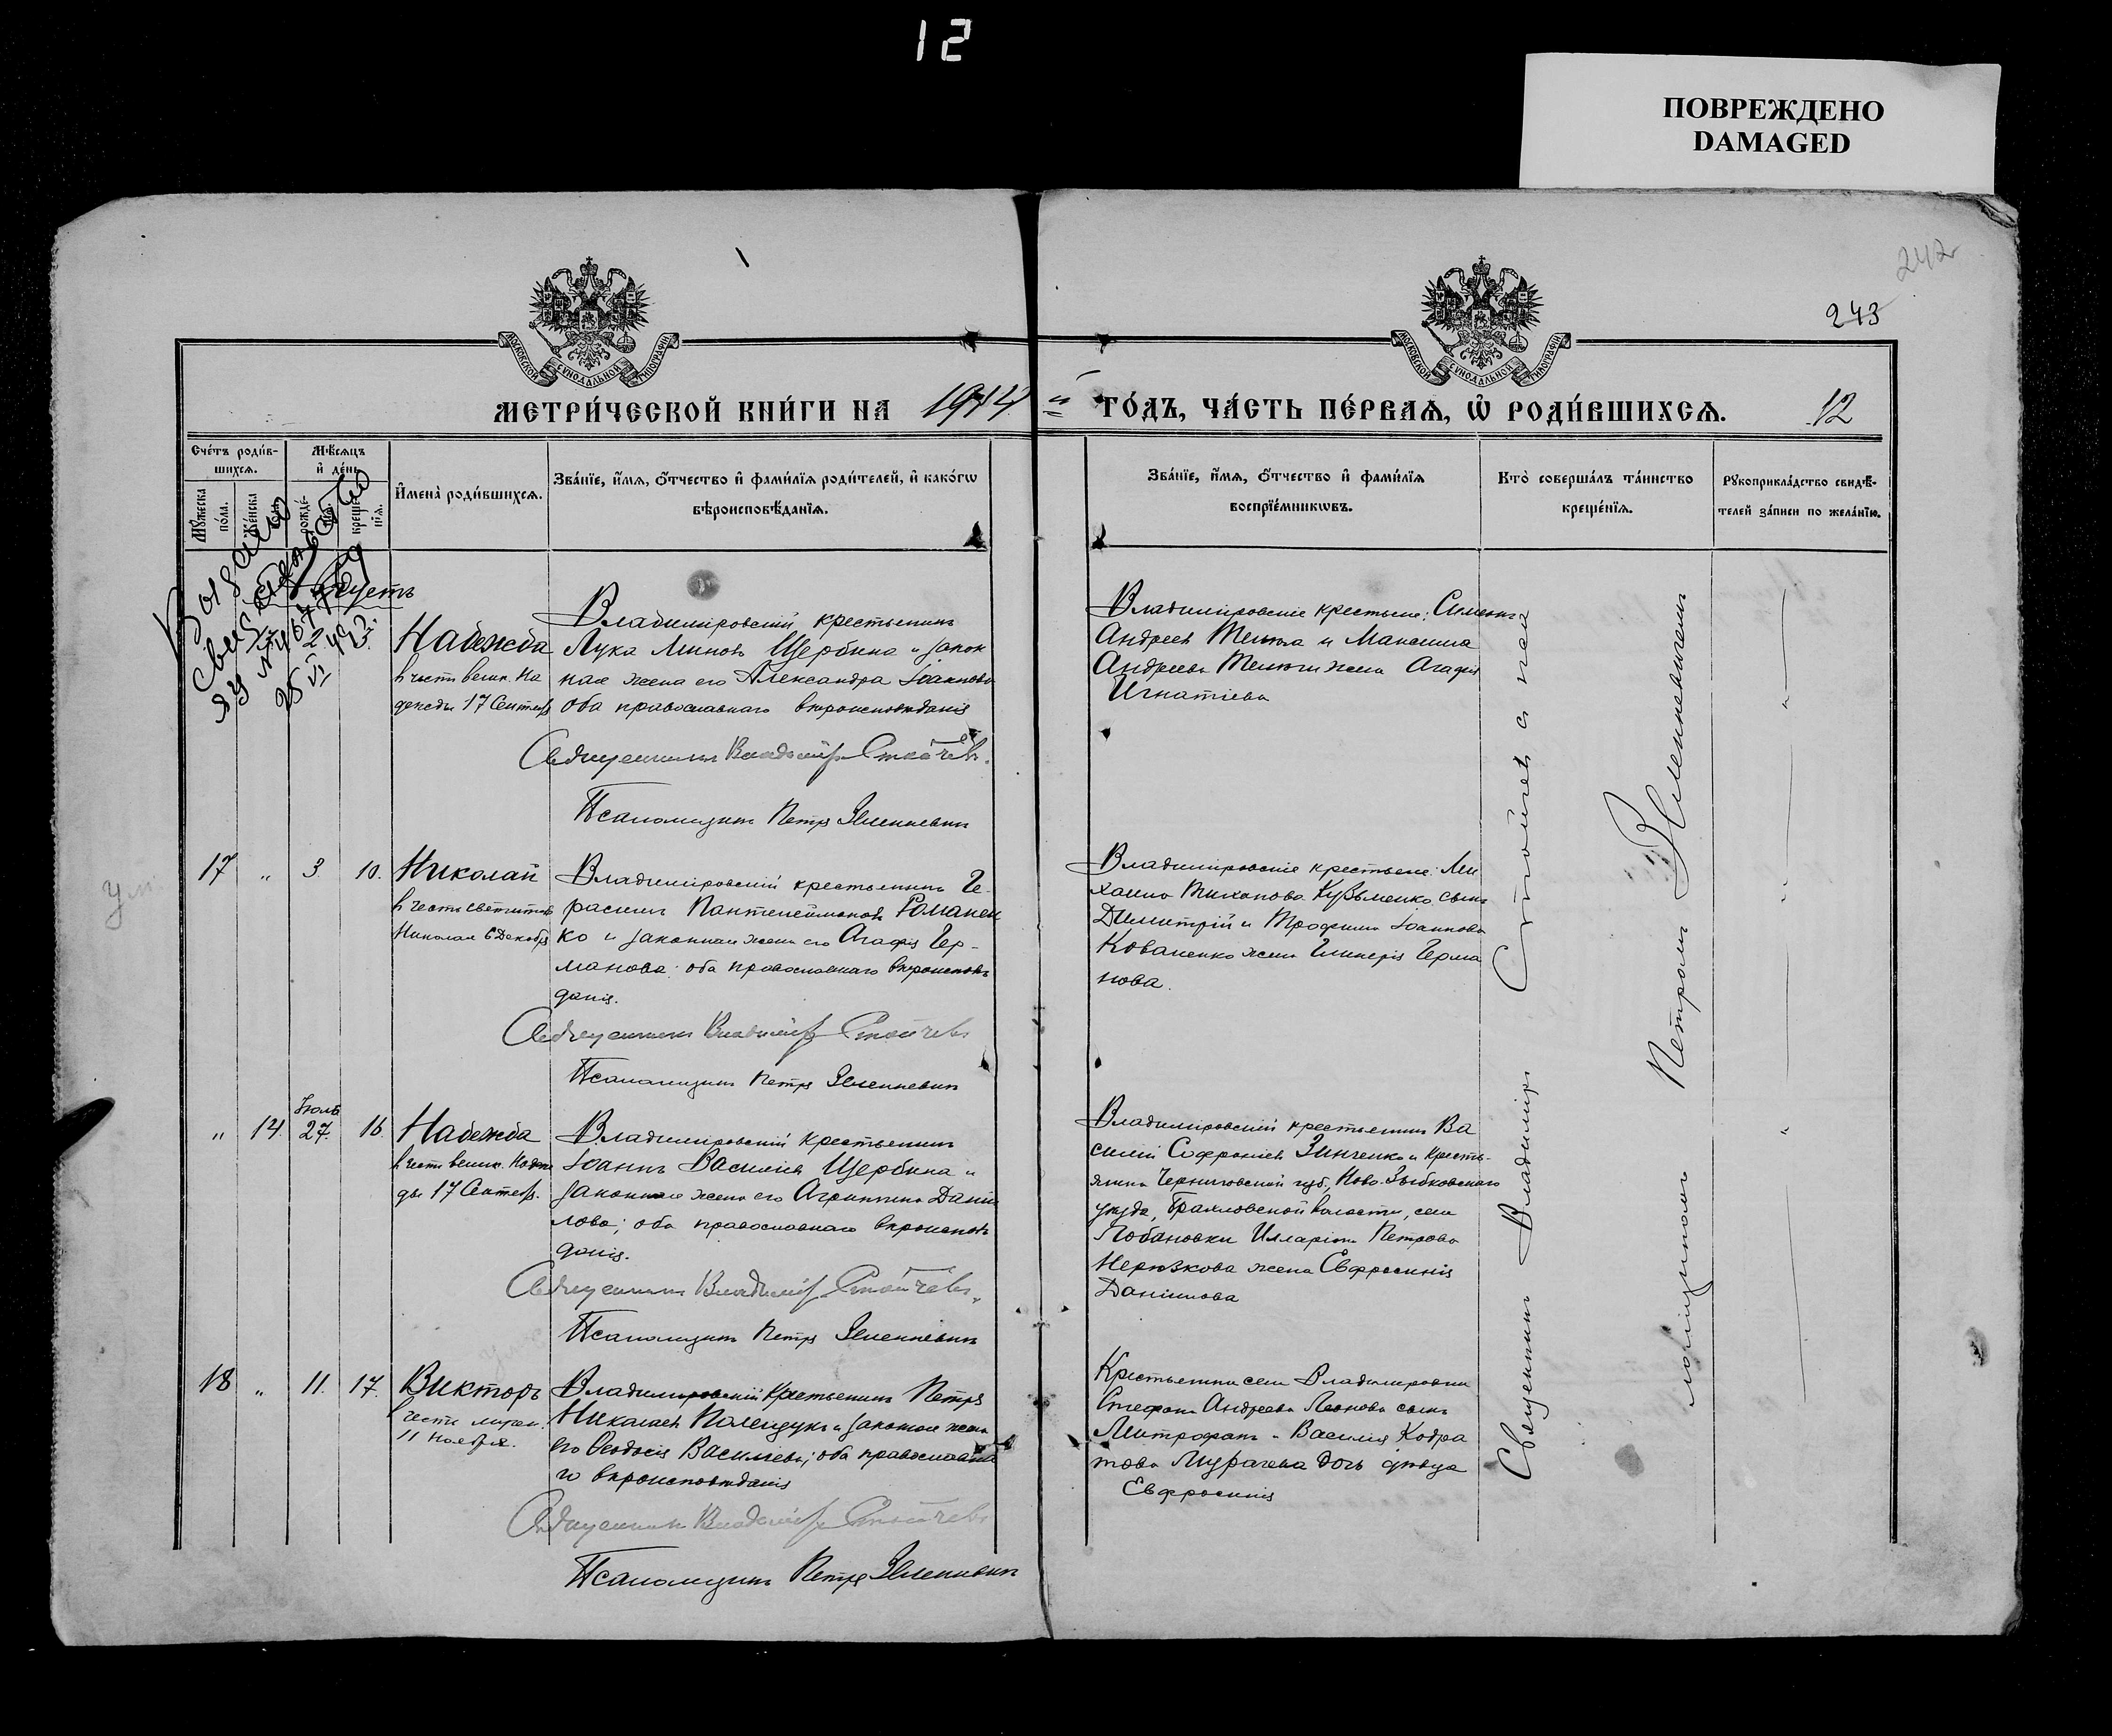 12
ПОВРЕЖДЕНО
DAMAGED
242
243
МОСКОВСКОЙ СѴНОДАЛЬНОЙ ТИПОГРАФІИ
МОСКОВСКОЙ СѴНОДАЛЬНОЙ ТИПОГРАФІИ
МЕТРИ́ЧЕСКОЙ КНИ́ГИ НА 1914 й ГО́ДЪ, ЧА́СТЬ ПЕ́РВАѦ, Ѡ҆ РОДИ́ВШИХСѦ. 12
Сче́тъ роди́в-
шихсѧ.
Мѣ́сѧцъ
и҆ де́нь
Мꙋ́жеска
по́ла.
Же́нска
рожде́-
креще́-
нїѧ.
И҆мена̀ роди́вшихсѧ.
Зва́нїе, и҆́мѧ, ѻ҆́тчество и҆ фами́лїѧ роди́телей, и҆ како́гѡ
вѣроисповѣ́данїѧ.
Зва́нїе, и҆́мѧ, ѻ҆́тчество и҆ фами́лїѧ
воспрїе́мникѡвъ.
Кто̀ соверша́лъ та́инство
креще́нїѧ.
Рꙋкоприкла́дство свидѣ́-
телей за́писи по жела́нїю.
Августъ
2. 3.
Надежда
в честь велик. На
дежды 17 Сентяб
Владимировскій крестьянинъ
Лука Миновъ Щербина и закон
ная жена его Александра Іоаннова
оба православнаго вѣроисповѣданія
Священникъ Владиміръ Стойчевъ.
Псаломщикъ Петръ Зменкевичъ
Владимировскіе крестьяне: Симеонъ
Андреевъ и Максима
Андреева жена Агафія
Игнатіева
17 " 3. 10. Николай
в честь святителя
Николая 6 Декабря
Владимировскій крестьянинъ Ге-
расимъ Пантелеймоновъ Романен
ко и законная жена его Агафія Гер-
манова: оба православнаго вѣроисповѣ
данія.
Священникъ Владиміръ Стойчевъ
Псаломщикъ Петръ Зменкевичъ
Владимировскіе крестьяне: Ми
хаила Тихонова Кузьменко сынъ
Димитрій и Трофима Іоаннова
Коваленко жена Гликерія Герма
нова.
" 14. Іюль 27. 16. Надежда
в честь велик. Надеж
ды 17 Сентяб.
Владимировскій крестьянинъ
Іоаннъ Василіевъ Щербина и
законная жена его Агриппина Дани
лова; оба православнаго вѣроисповѣ
данія.
Священникъ Владиміръ Стойчевъ.
Псаломщикъ Петръ Зменкевичъ
Владимировскій крестьянинъ Ва
силій Софроніевъ Зинченко и кресть-
янина Черниговской губ., Ново-Зыбковскаго
уѣзда, Брахловской волости, села
Лобановки Илларіона Петрова
жена Евфросинія
Даніилова
18 " 11. 17. Викторъ
в честь мучен.
11 Ноября.
Владимировскій крестьянинъ Петръ
Николаевъ Полещукъ и законная жена
его Ѳеодосія Василіева; оба православна
го вѣроисповѣданія
Священникъ Владиміръ Стойчевъ
Псаломщикъ Петръ Зменкевичъ
Крестьянина села Владимировки
Стефана Андреева Леонова сынъ
Митрофанъ и Василія Кодра
това Мурачева дочь дѣвица
Евфросинія
Священникъ Владиміръ Стойчевъ с пса
ломщикомъ Петромъ Зменкевичемъ